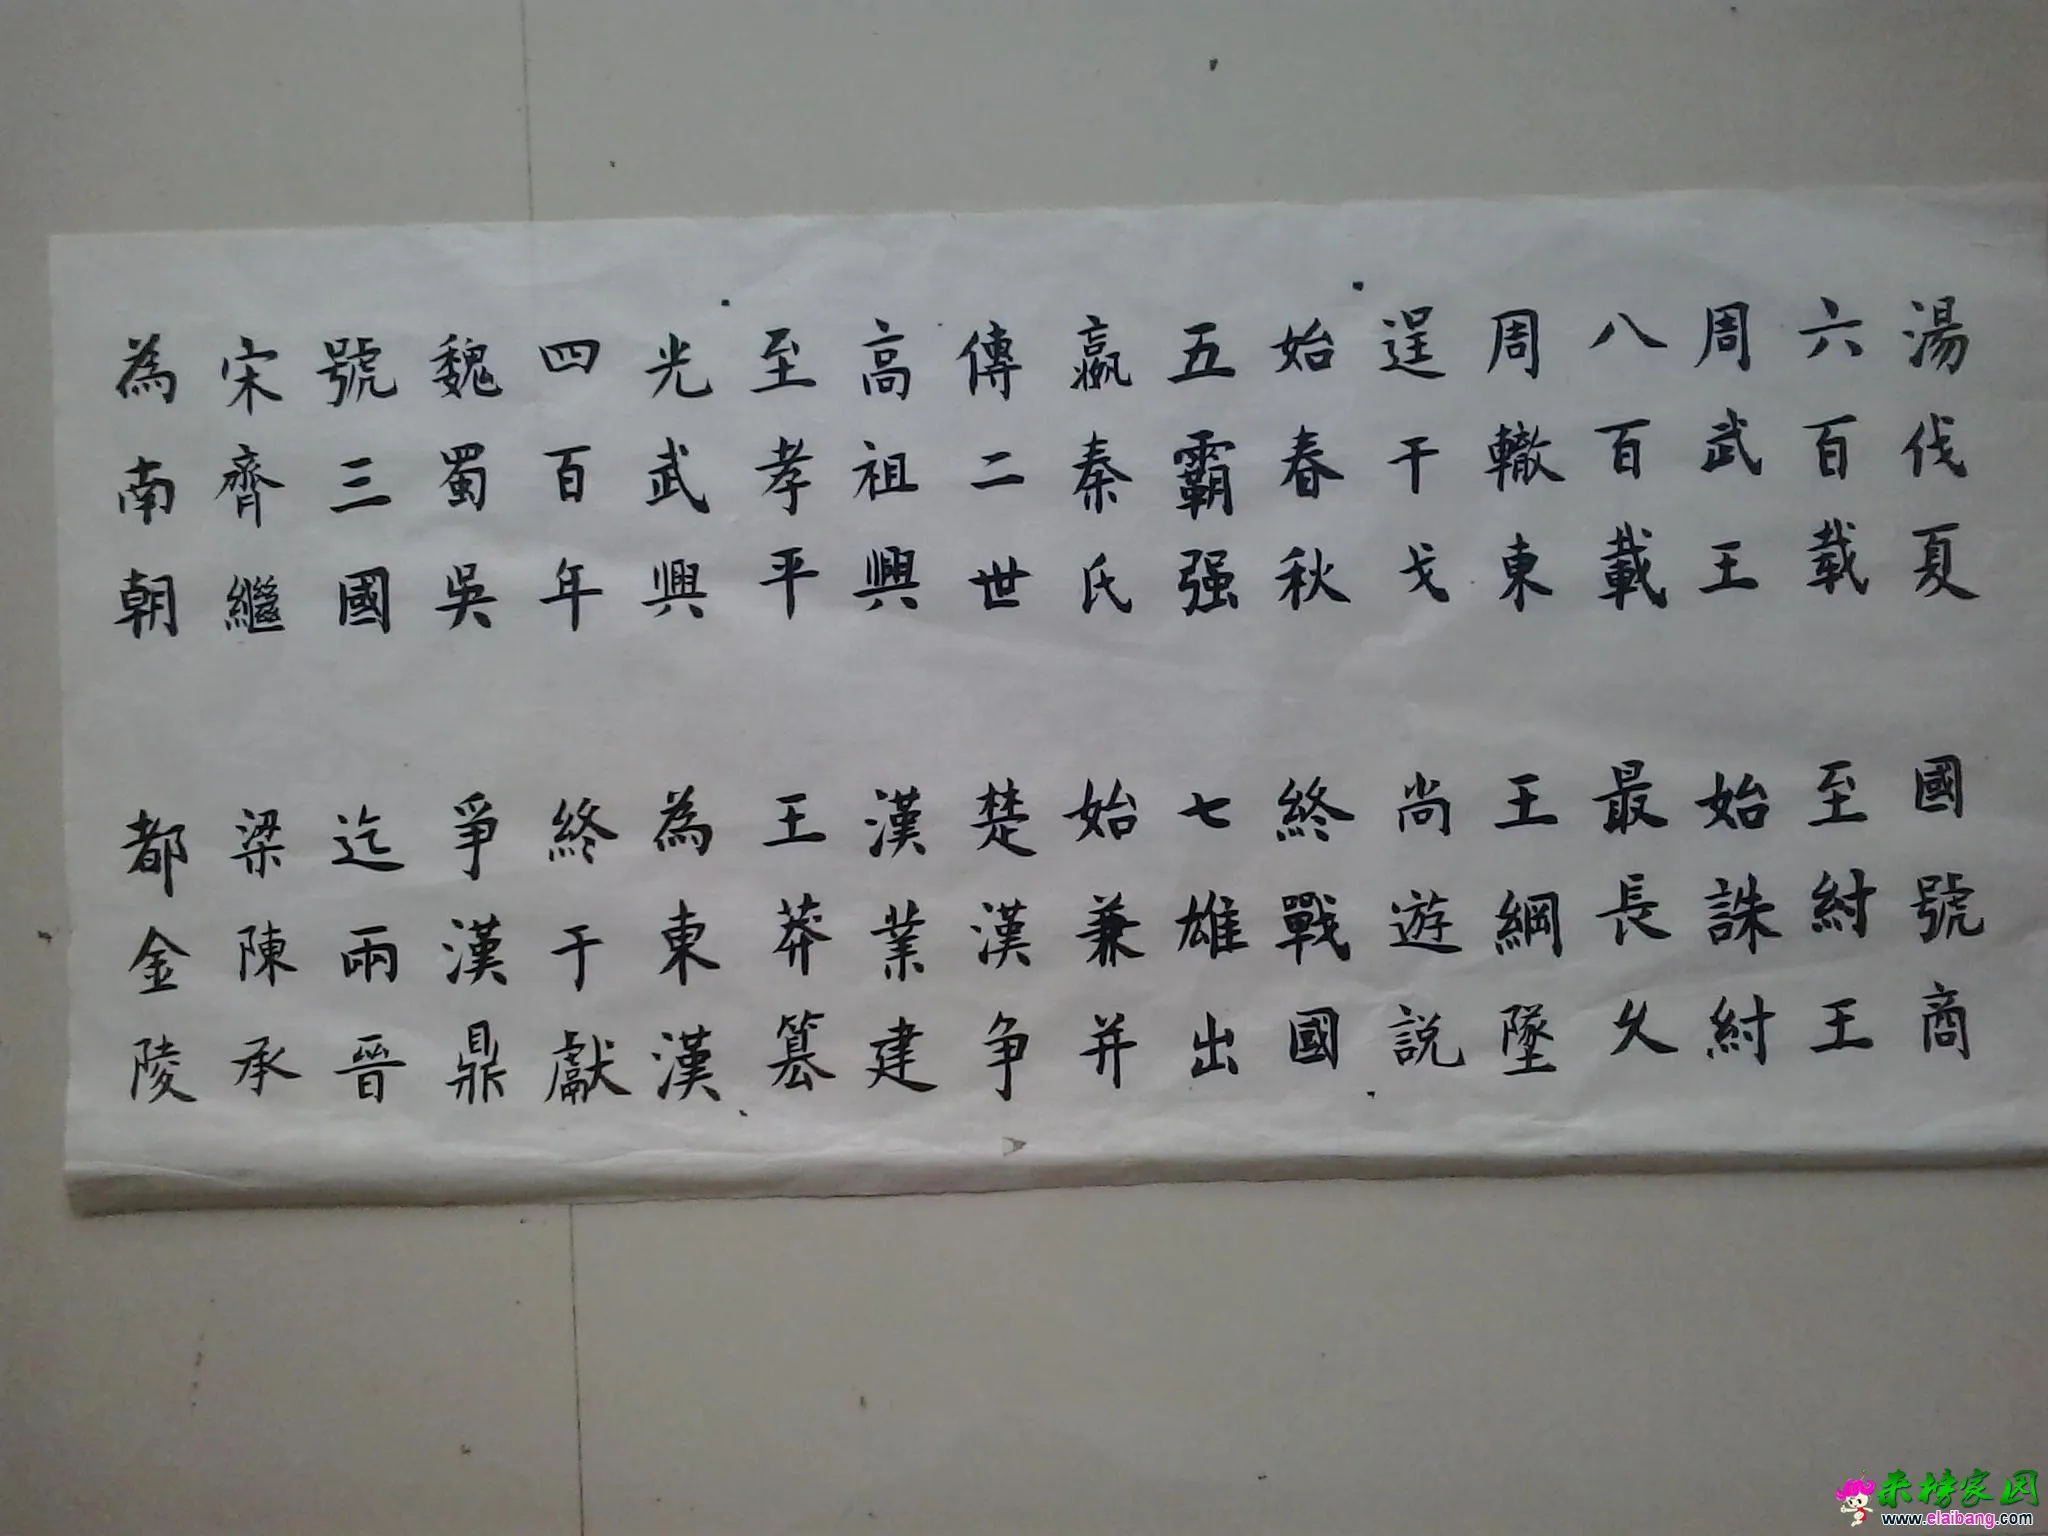 湯伐夏 國號商
六百载 至紂王
周武王 始誅紂
八百載 最長久
周轍東 王綱墜
逞干戈 尚遊説
始春秋 終戰國
五霸强 七雄出
嬴秦氏 始兼并
傳二世 楚漢争
高祖興 漢業建
至孝平 王莽篡
光武興 為東漢
四百年 終于獻
魏蜀吳 爭漢鼎
號三國 迄兩晉
宋齊繼 梁陳承
為南朝 都金陵
来榜家园
www.elaibang.com